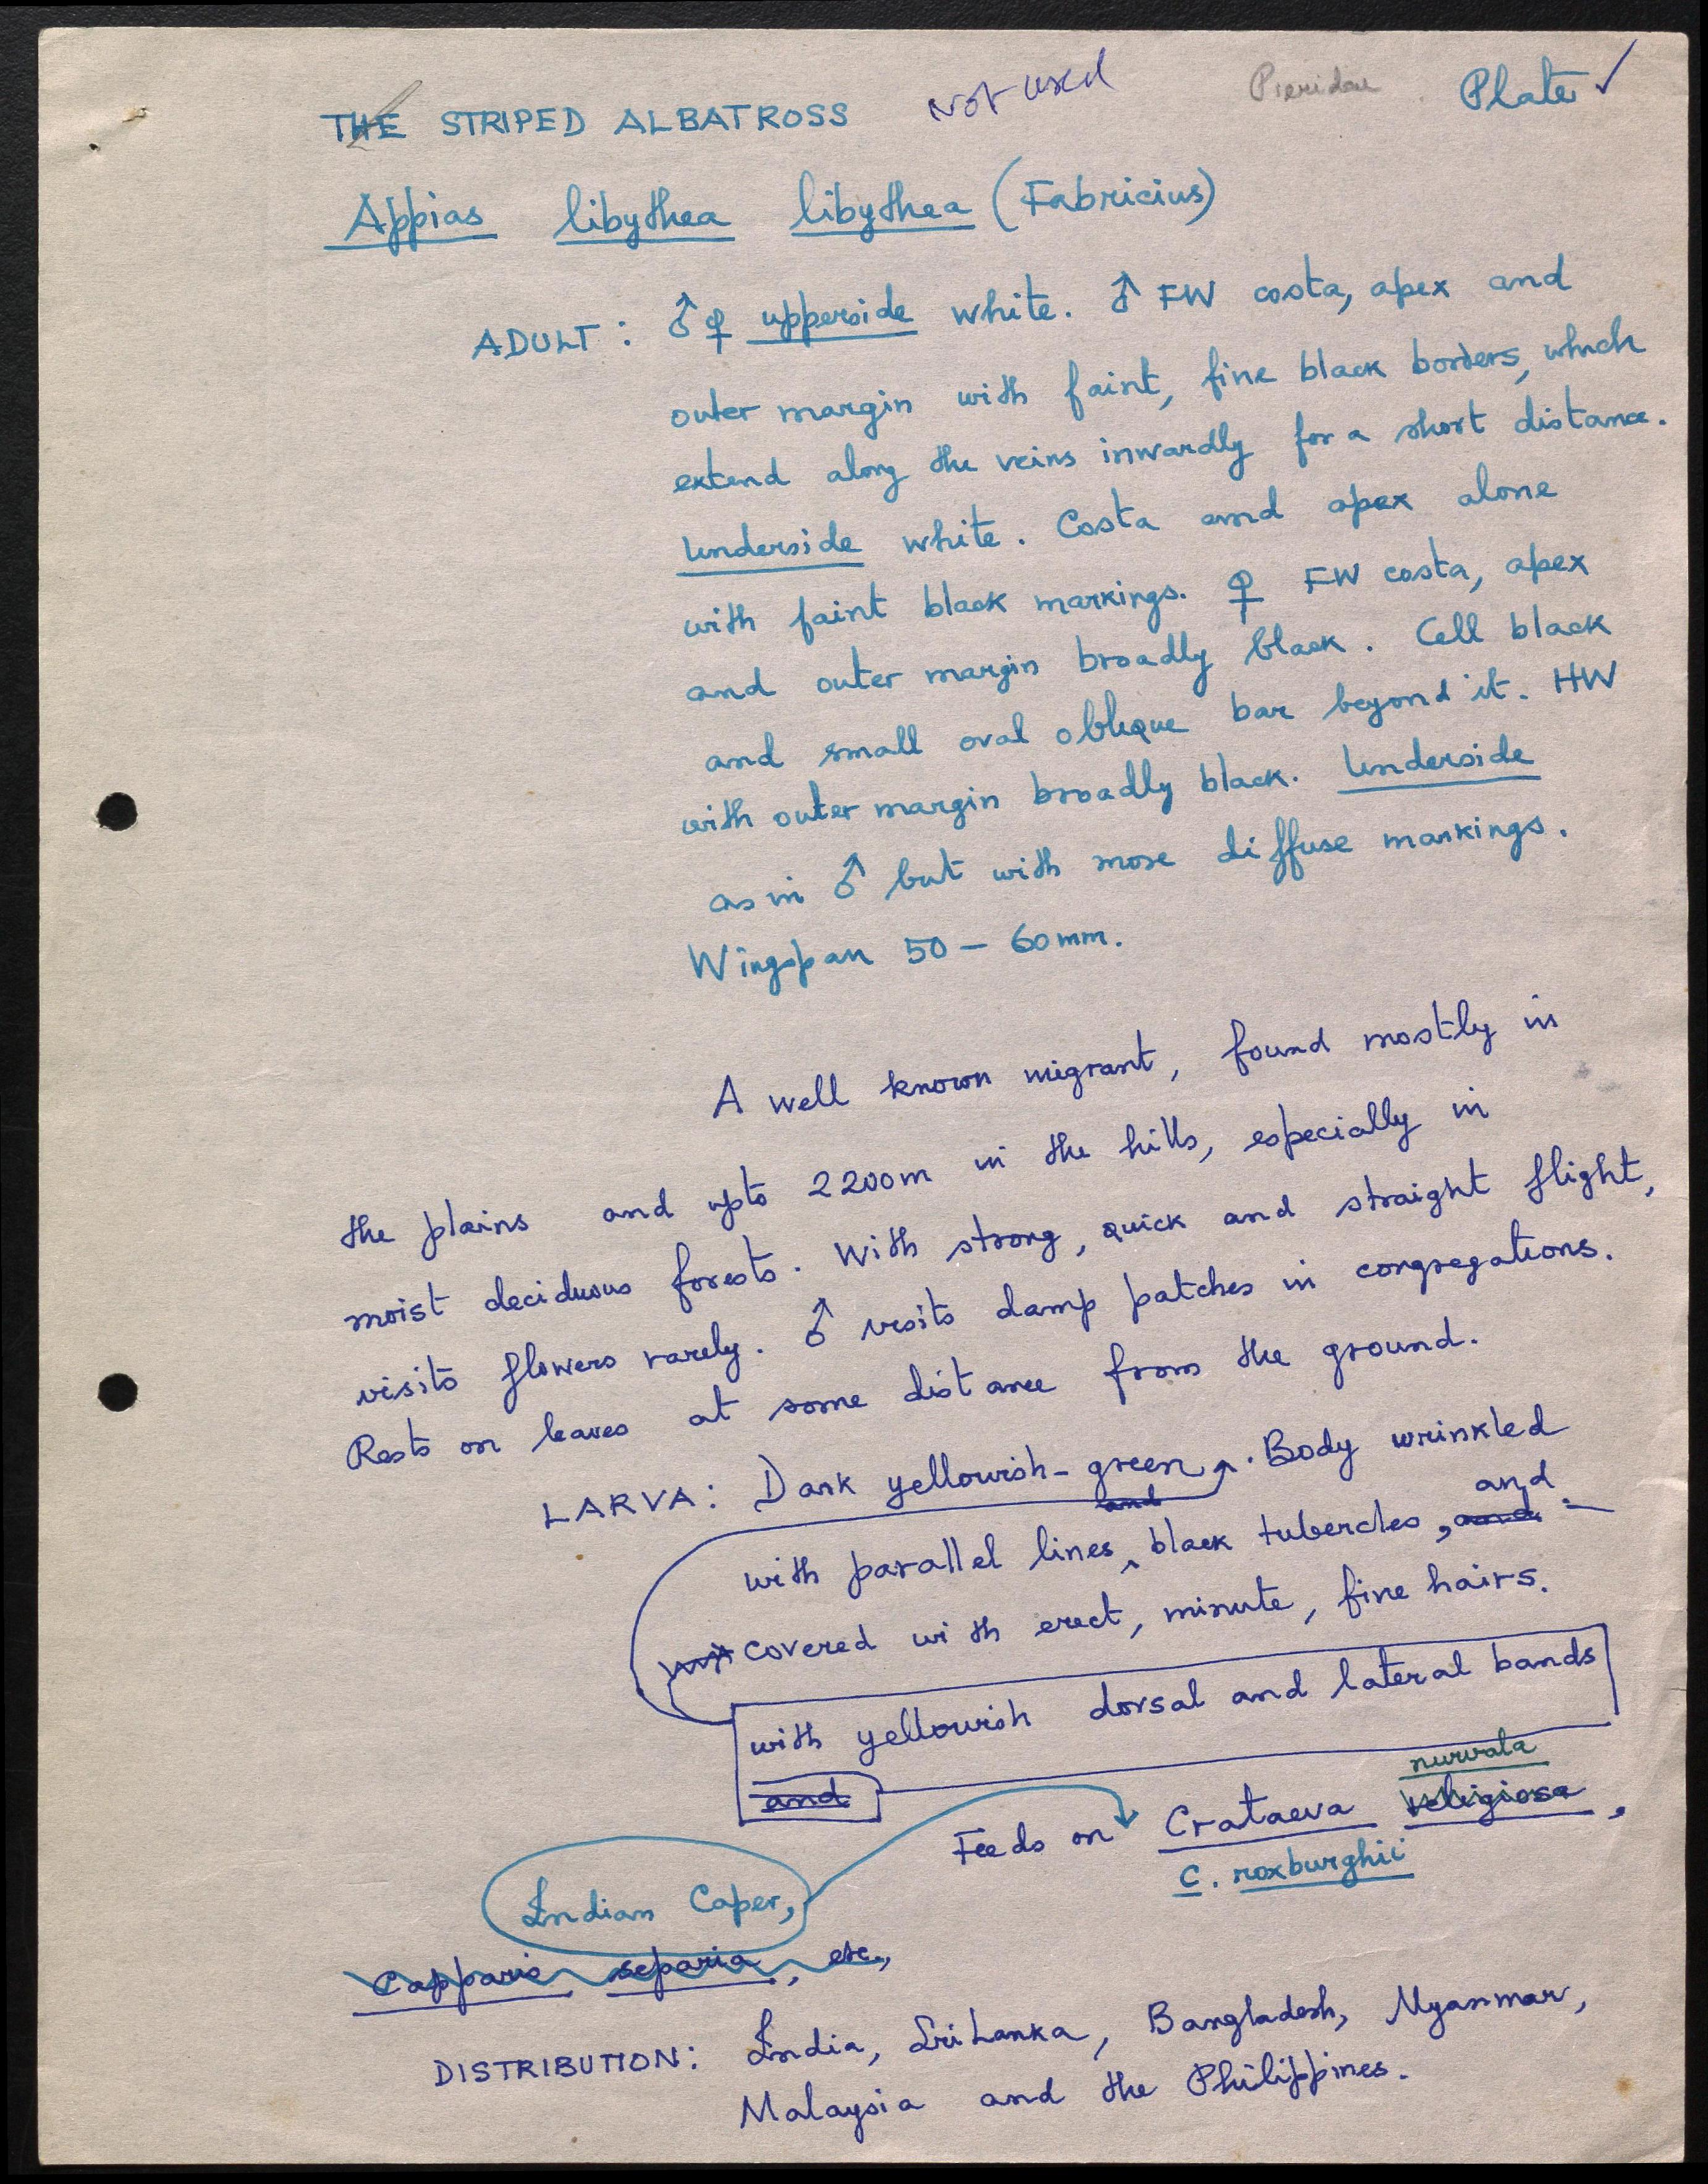 Not used
Pieridae
Plate ✓
THE STRIPED ALBATROSS
Appias libythea libythea (Fabricius)
ADULT : ♂♀ upperside white. ♂ FW costa, apex and
outer margin with faint, fine black borders, which
extend along the veins inwardly for a short distance.
Underside white. Costa and apex alone
with faint black markings. ♀ FW costa, apex
and outer margin broadly black. Cell black
and small oval oblique bar beyond it. HW
with outer margin broadly black. Underside
as in ♂ but with more diffuse markings.
Wingspan 50 – 60mm.
A well known migrant, found mostly in
the plains and upto 2200m in the hills, especially in
moist deciduous forests. With strong, quick and straight flight,
visits flowers rarely. ♂ visits damp patches in congregations.
Rests on leaves at some distance from the ground.
LARVA : Dark yellowish-green. Body wrinkled
and and
with parallel lines, black tubercles, and
covered with erect, minute, fine hairs.
with yellowish dorsal and lateral bands
and
nurvala
Feeds on Crataeva religiosa,
C. roxburghii
Indian Caper,
Capparis separia, etc.,
DISTRIBUTION: India, Sri Lanka, Bangladesh, Myanmar,
Malaysia and the Philippines.